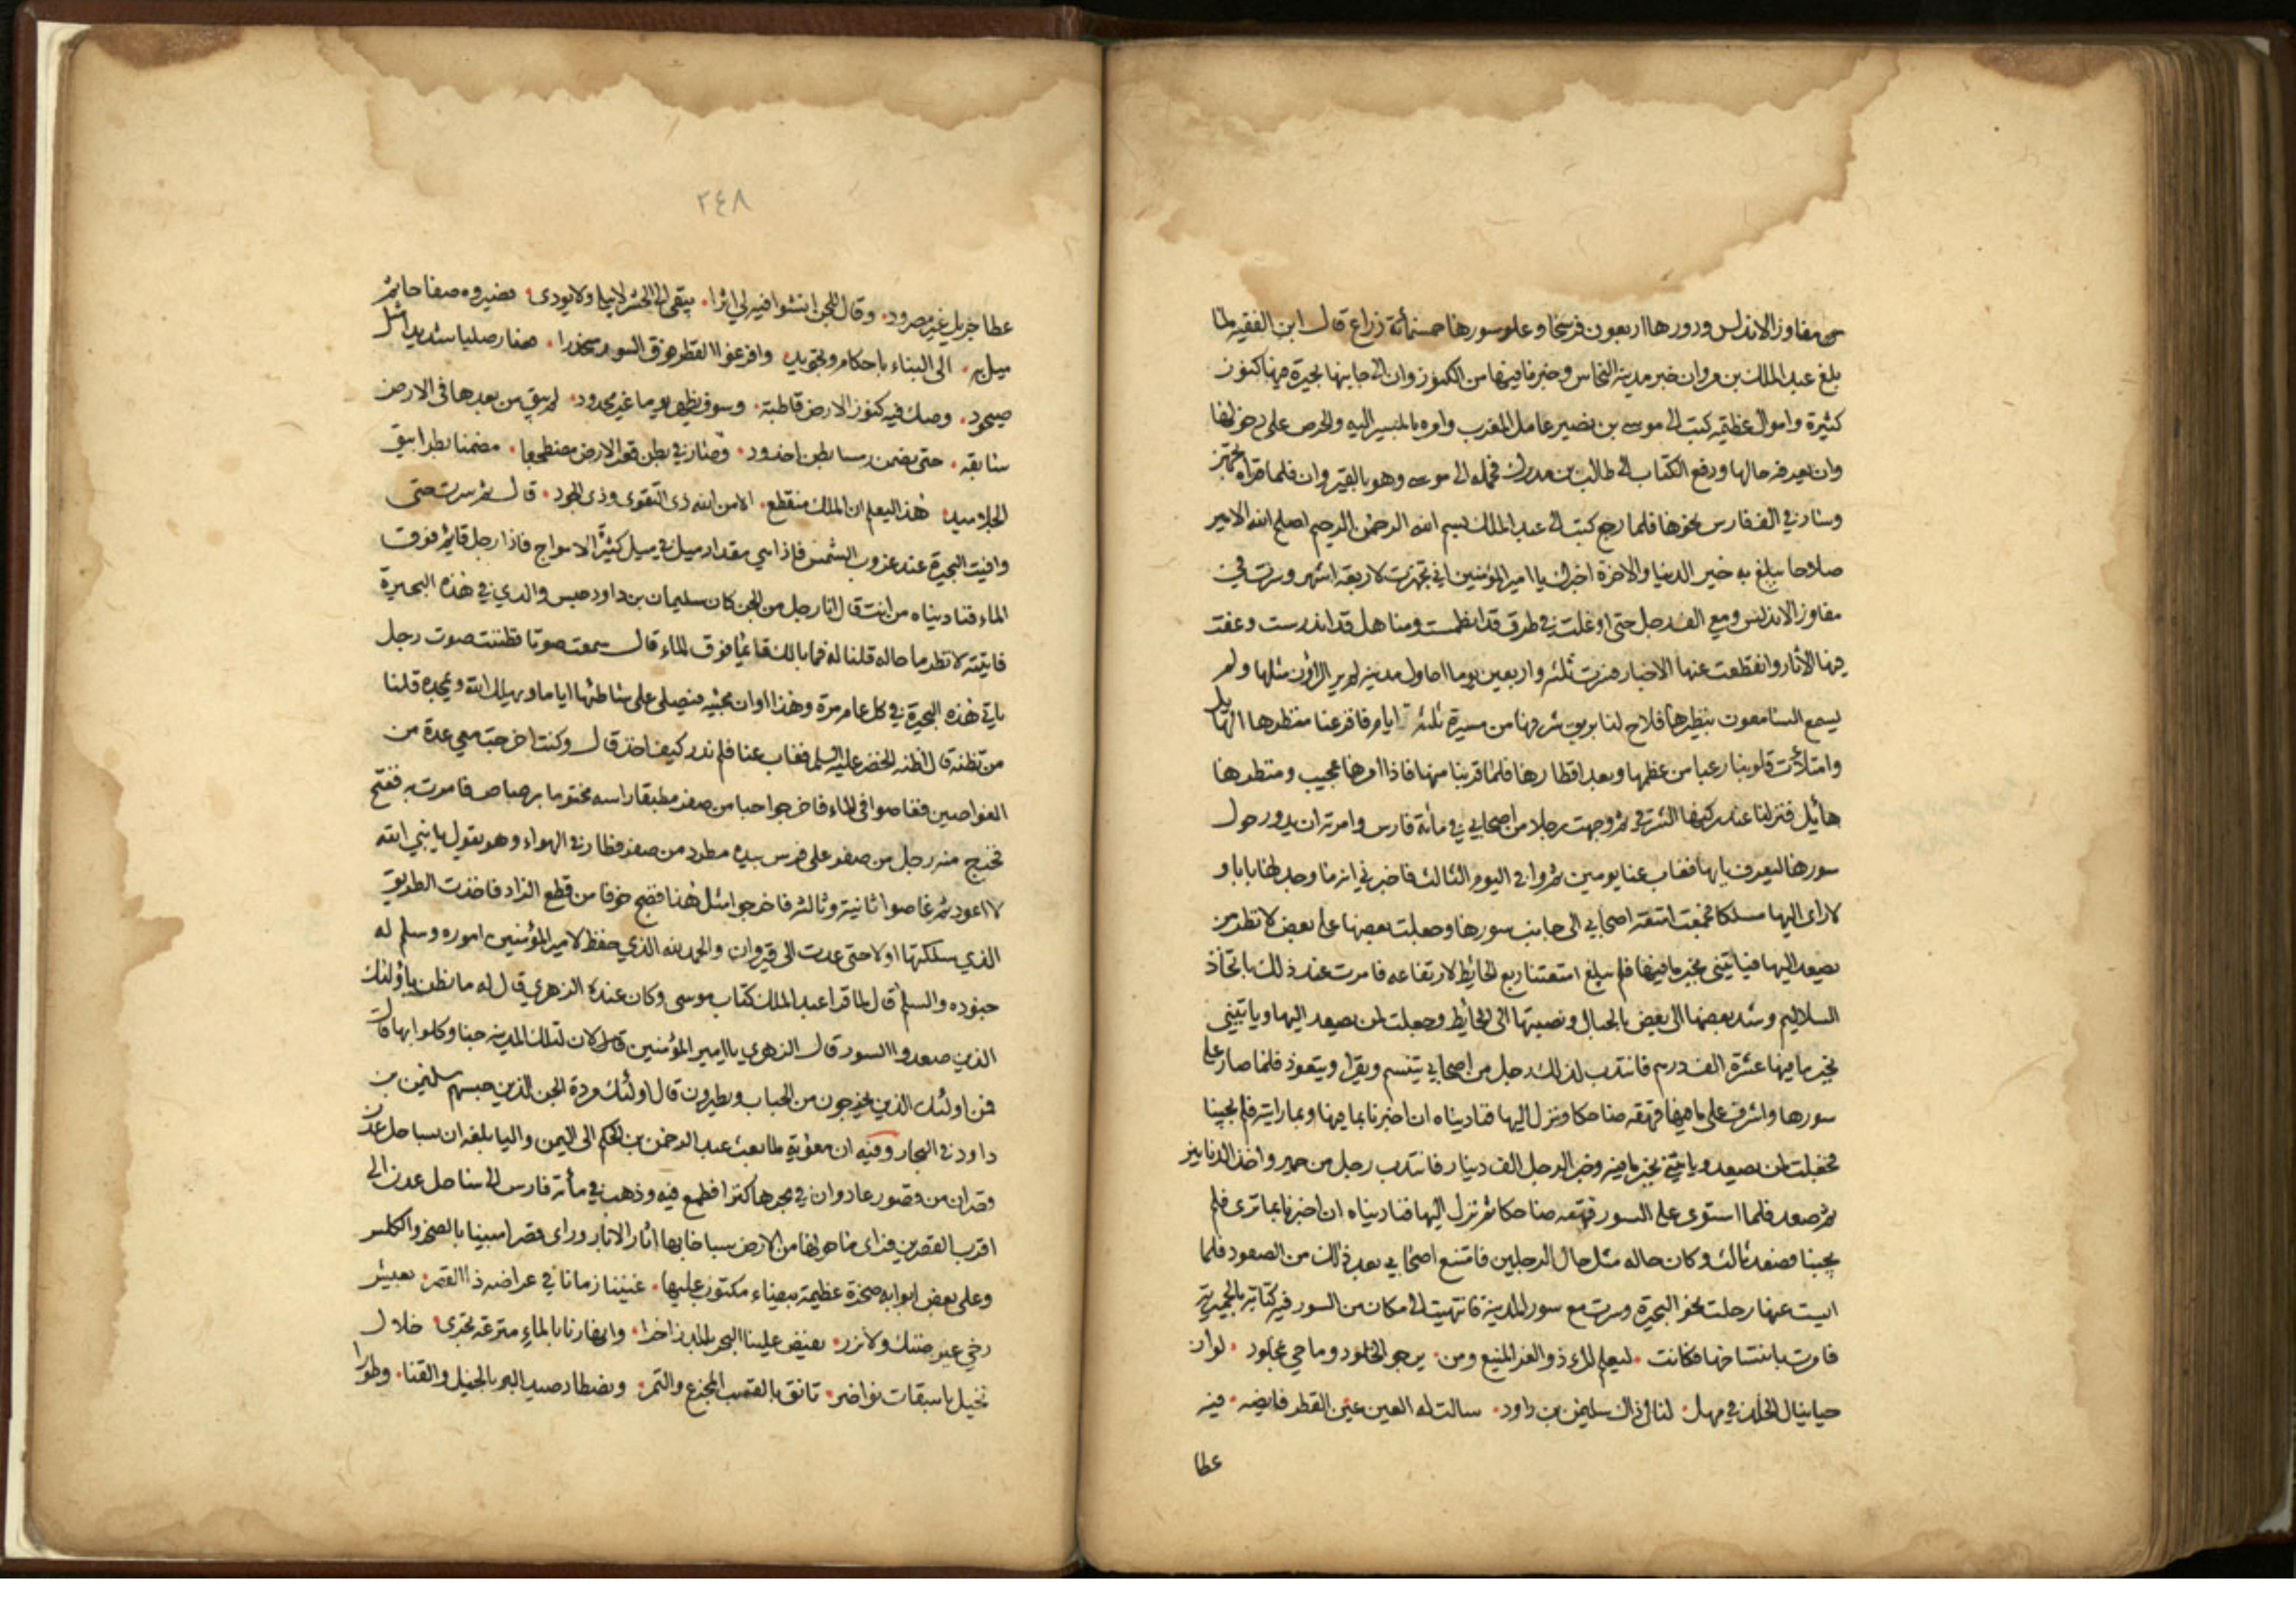 من مفاوز الاندلس ودورها اربعون فرسخا وعلو سورها خمسمائة ذراع قال ابن الفقيه لما
بلغ عبد الملك بن مروان خبر مدينة النحاس وخبر ما فيها من الكنوز وان الى جانبها بحيرة فيها كنوز
كثيرة واموال عظيمة كتب الى موسى بن نصير عامل المغرب وامره بالمسير اليه والحرص على دخولها
وان يعرفه حالها ودفع الكتاب الى طالب بن مدرك فحمله الى موسى وهو بالقيروان فلما قراه تجهز
وسار في الف فارس نحوها فلما رجع كتب الى عبد الملك بسم الله الرحمن الرحيم اصلح الله الامير
صلاحا يبلغ به خير الدنيا والاخرة اخبرك يا امير المؤمنين اني تجهزت لاربعة اشهر وسرت في
مفاوز الاندلس ومعي الف رجل حتى اوغلت في طرق قد انطمست ومناهل قد اندرست وعفت
فيها الآثار وانقطعت عنها الاخبار فسرت ثلثه واربعين يوما احاول مدينة لم ير الراؤن مثلها ولم
يسمع السامعون بنظيرها فلاح لنا بريق شرفها من مسيرة ثلثة ايام فافزعنا منظرها الهائل
وامتلأت قلوبنا رعبا من عظمها وبعد اقطارها فلما قربنا منها فاذا امرها عجيب ومنظرها
هائل فنزلنا عند ركنها الشرقي ثم وجهت رجلا من اصحابي في مائة فارس وامرته ان يدور حول
سورها ليعرف بابها فغاب عنا يومين ثم وافى اليوم الثالث فاخبرني انه ما وجد لها بابا و
لا راى اليها مسلكا فجمعت امتعة اصحابي الى جانب سورها وجعلت بعضها على بعض لانظر من
يصعد اليها فياتيني بخبر ما فيها فلم يبلغ امتعتنا ربع الحائط لارتفاعه فامرت عند ذلك باتخاذ
السلاليم وشد بعضها الى بعض بالحبال ونصبتها الى الحائط وجعلت لمن يصعد اليها وياتيني
بخبر ما فيها عشرة الف درهم فانتدب لذلك رجل من اصحابي يتسنم ويقرا ويتعوذ فلما صار على
سورها واشرف على ما فيها قهقه ضاحكا ونزل اليها فناديناه ان اخبرنا بما فيها وبما رايته فلم يجبنا
فجعلت لمن يصعد وياتيني بخبر ما فيها وخبر الرجل الف دينار فانتدب رجل من حمير واخذ الدنانير
ثم صعد فلما استوى على السور قهقه ضاحكا ثم نزل اليها فناديناه ان اخبرنا بما ترى فلم
يجبنا فصعد ثالث وكان حاله مثل حال الرجلين فامتنع اصحابي بعد ذلك من الصعود فلما
ايست عنها رحلت نحو البحيرة وسرت مع سور المدينة فانتهيت الى مكان من السور فيه كتابة بالحميرية
فامرت بانتساخها فكانت ليعلم المرء ذو العز المنيع ومن يرجو الخلود وما حي بمخلود لو ان
حيا ينال الخلد في مهل لنال ذاك سليمن بن داود سالت له العين عين القطر فايضه فيه
عطا
٢٤٨
عطا جزيل غير مصرود وقال للجن انشوا فيه لي اثرا يبقى الى الحشر لا يبلى ولا يودى فصيروه صفاحا ثم
ميل به الى البناء باحكام وتجويد وافرغوا القطر فوق السور منحدرا فصار صلبا شديدا مثل
صيخود وصك فيه كنوز الارض قاطبة وسوف تظهر يوما غير محدود لم يبق من بعدها في الارض
سابقه حتى يضمن رمسا بطن اخدود وصار في بطن قعر الارض مضطجعا مضمنا بطوابيق
الجلاميد هذا ليعلم ان الملك منقطع الا من الله ذي التقوى وذي الجود قال ثم سرت حتى
وافيت البحيرة عند غروب الشمس فاذا هي مقدار ميل في ميل كثيرة الامواج فاذا رجل قائم فوق
الماء فناديناه من انت قال انا رجل من الجن كان سليمان بن داود حبس والدي في هذه البحيرة
فاتيته لانظر ما حاله قلنا له فما بالك قائما فوق الماء قال سمعت صوتا فظننت صوت رجل
ياتي هذه البحيرة في كل عام مرة وهذا اوان مجيئه فيصلي على شاطئها اياما ويهلل الله ويمجده قلنا
من تظنه قال اظنه الخضر عليه السلم فغاب عنا فلم ندر كيف اخذ قال وكنت اخرجت معي عدة من
الغواصين فغاصوا في الماء فاخرجوا حبا من صفر مطبقا راسه مختوما برصاص فامرت به ففتح
فخرج منه رجل من صفر على فرس بيده مطرد من صفر فطار في الهواء وهو يقول يا نبي الله
لا اعود ثم غاصوا ثانية وثالثة فاخرجوا مثل هذا فضج خوفا من قطع الزاد فاخذت الطريق
الذي سلكتها اولا حتى عدت الى قيروان والحمد لله الذي حفظ لامير المؤمنين اموره وسلم له
جنوده والسلم قال لما قرا عبد الملك كتاب موسى وكان عنده الزهري قال له ما تظن باولئك
الذين صعدوا السور قال الزهري يا امير المؤمنين كان لتلك المدينة جنا وكلوا بها قال
فمن اولئك الذين يخرجون من الحباب ويطيرون قال اولئك مردة الجن الذين حبسهم سليمن بن
داود في البحار وفيه ان معوية لما بعث عبد الرحمن بن الحكم الى اليمن واليا بلغه ان بساحل عدن
قصران من قصور عاد وان في بحرها كنزا فطمع فيه وذهب في مائة فارس الى ساحل عدن الى
اقرب القصرين فراى ما حولها من الارض سباخا بها اثار الابار وراى قصرا مبنيا بالصخر والكلس
وعلى بعض ابوابه صخرة عظيمة بيضاء مكتوب عليها غنينا زمانا في عراضه ذا القصر بعيش
رخي غير ضنك ولا نزر يفيض علينا البحر بالمد زاخرا وانهارنا بالماء مترعة تجري خلال
نخيل باسقات نواضر تانق بالقسب المجزع والتمر ونصطاد صيد البر بالخيل والقنا وطورا